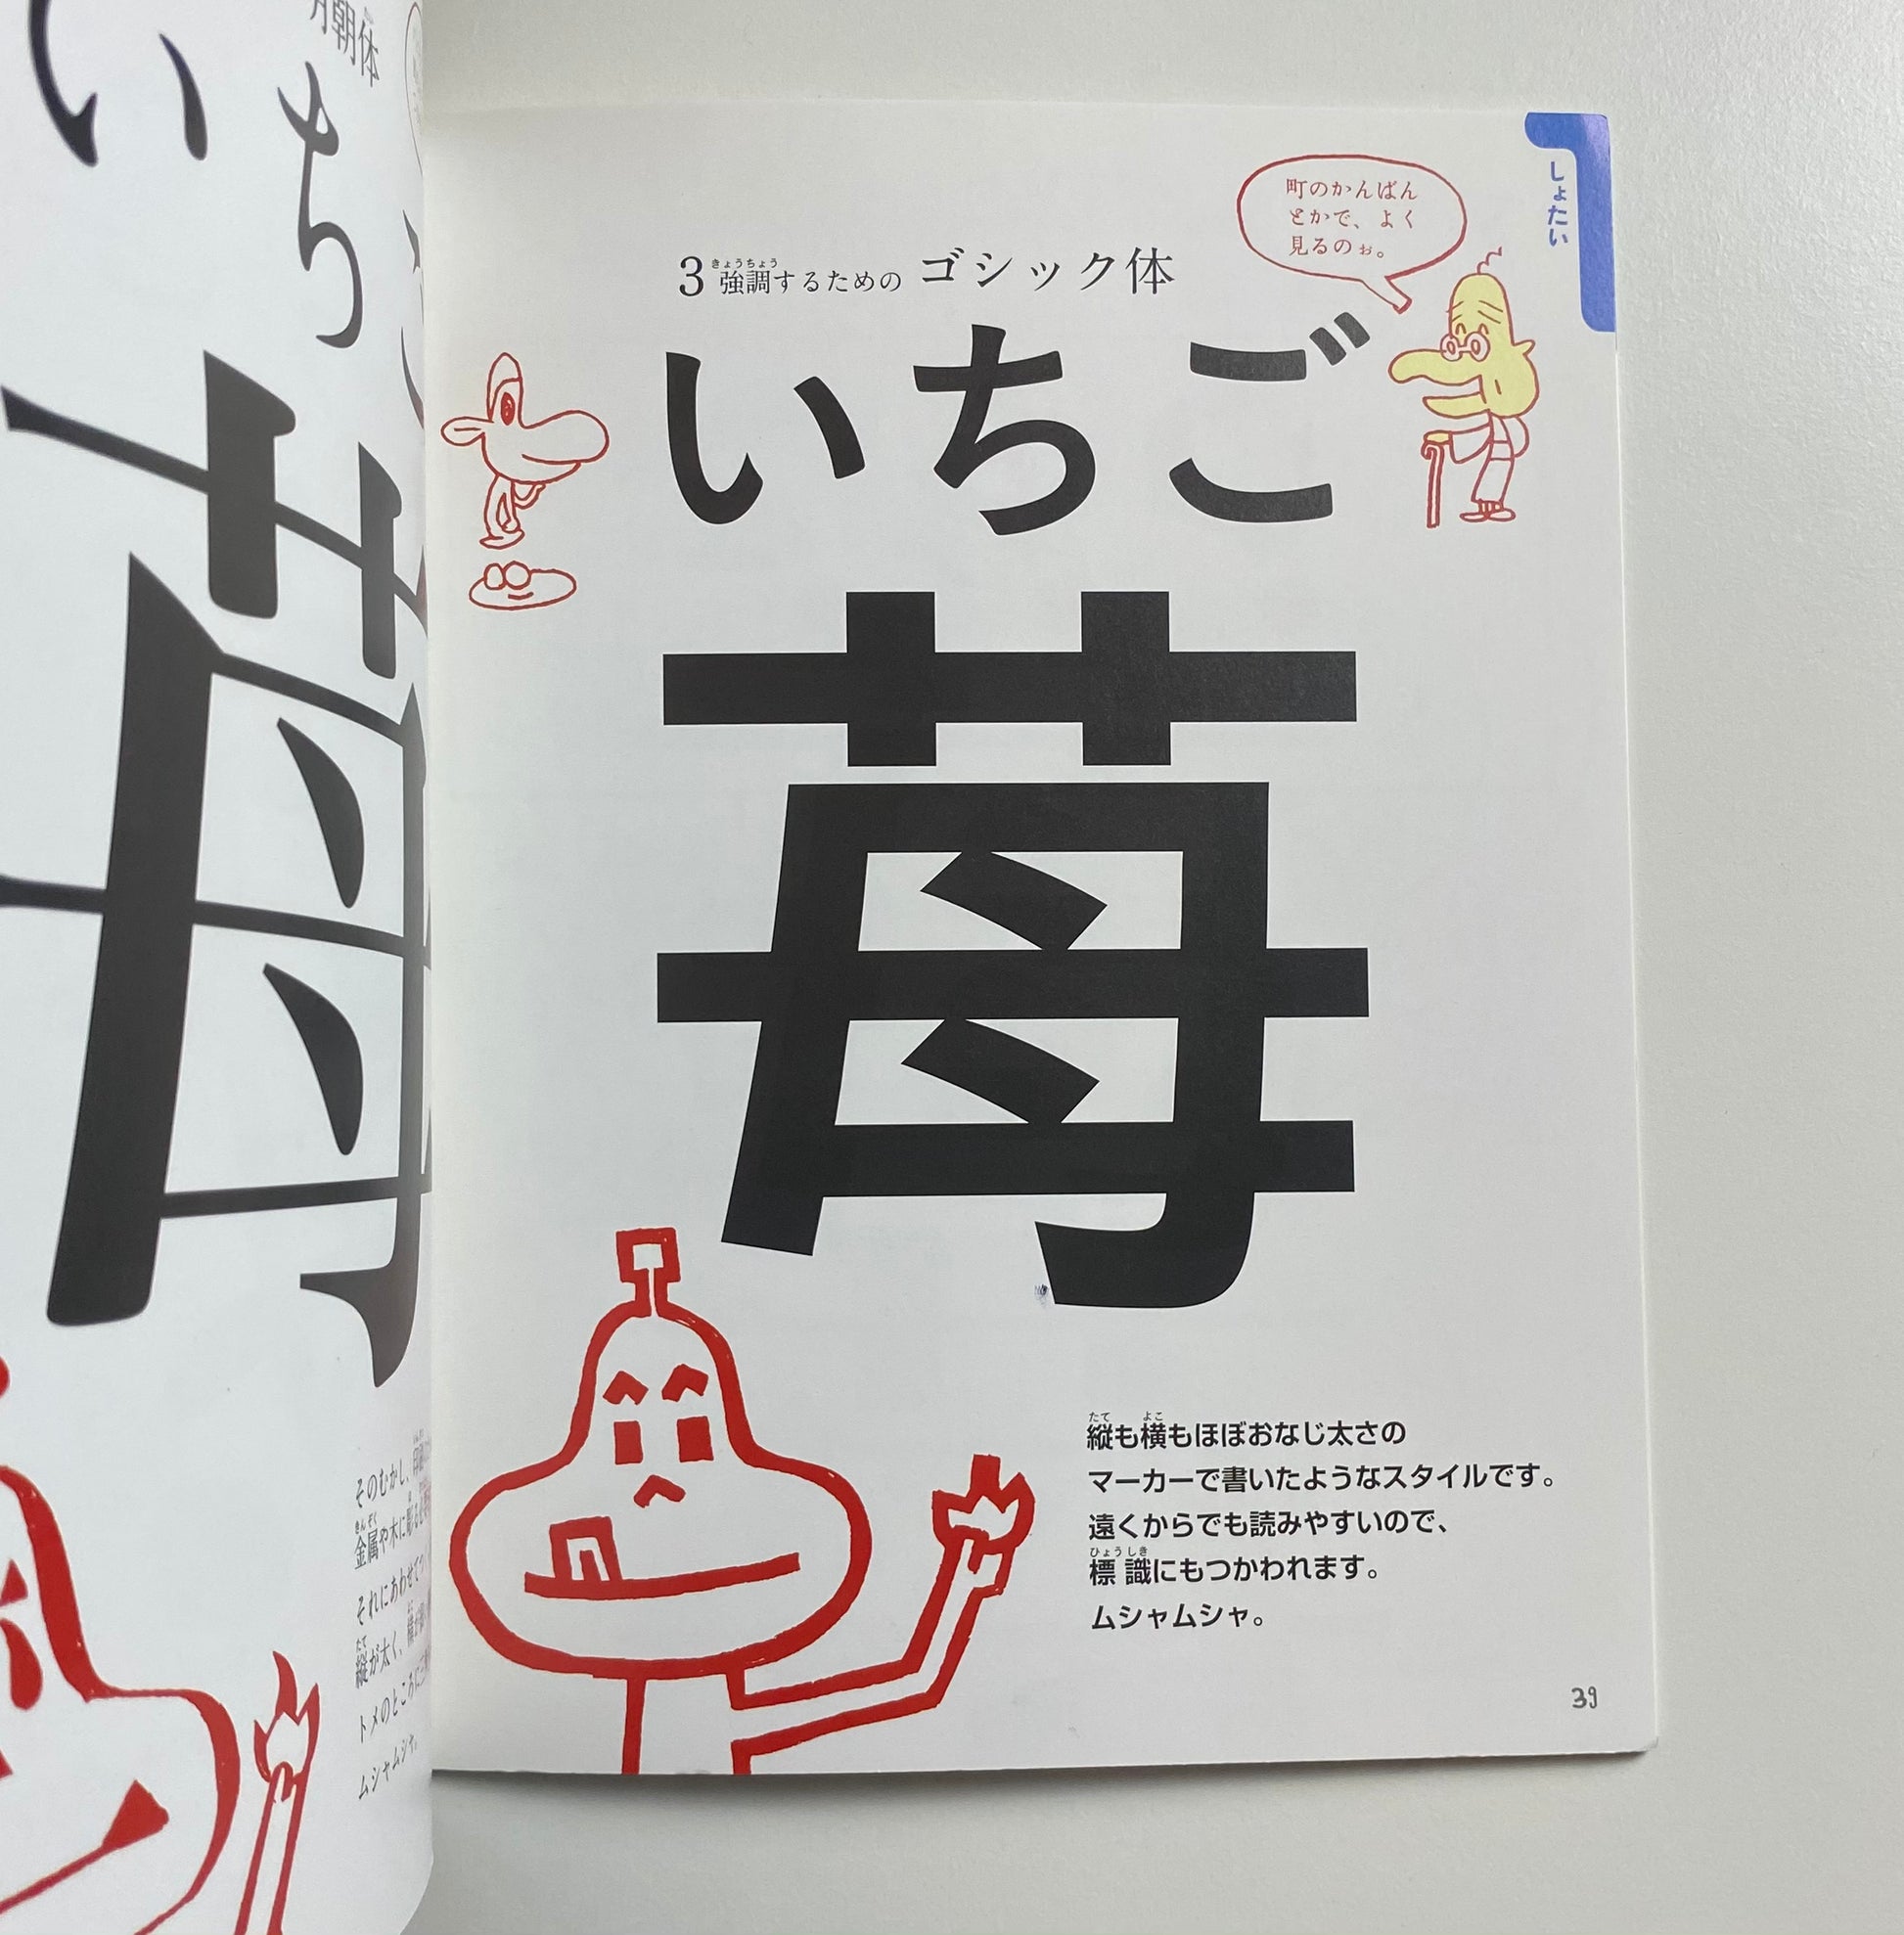 朝体
いち
苺
そのむかし、
金属や木に彫る
それにあわせて
縦が太く、
トメのところに三
ムシャムシャ。
しょたい
町のかんばん
とかで、よく
見るのぉ。
3 強調するための ゴシック体
いちご
苺
縦も横もほぼおなじ太さの
マーカーで書いたようなスタイルです。
遠くからでも読みやすいので、
標識にもつかわれます。
ムシャムシャ。
39